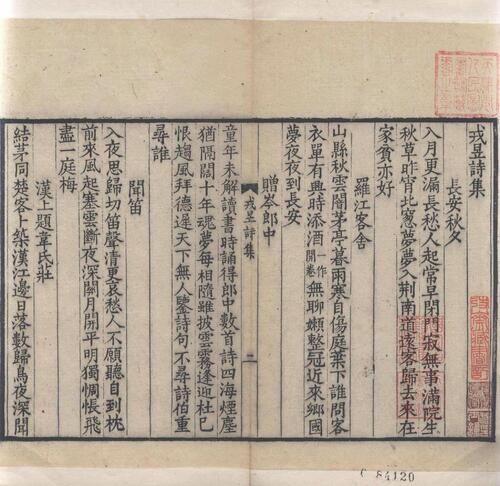 戎昱詩集
長安秋夕
八月更漏長愁人起常早閉門寂無事滿院生
秋草昨宵北窓夢夢入荆南道遠客歸去來在
家貧亦好
羅江客舍
山縣秋雲闇茅亭暮雨寒自傷庭葉下誰問客
衣單有興時添酒一作開卷無聊嬾整冠近來鄉國
夢夜夜到長安
贈岑郎中
戎昱詩集 二
童年未解讀書時誦得郎中數首詩四海煙塵
猶隔闊十年魂夢每相隨雖披雲霧逢迎杜已
恨趨風拜德遲天下無人鑒詩句不尋詩伯重
尋誰
聞笛
入夜思歸切笛聲清更哀愁人不願聽自到枕
前來風起塞雲斷夜深關月開平明獨惆悵飛
盡一庭梅
漢上題韋氏莊
結茅同楚客卜築漢江邊日落數歸鳥夜深聞
84120